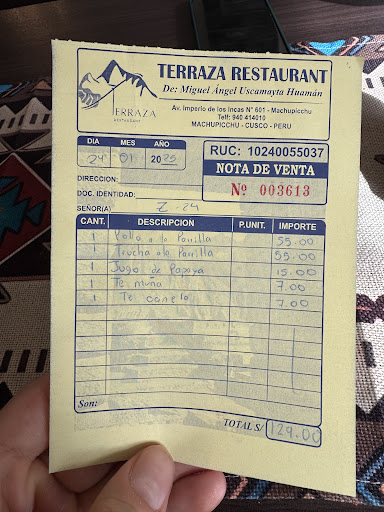 TERRAZA RESTAURANT
De: Miguel Ángel Uscamayta Huamán
TERRAZA
RESTAURANT
Av. Imperio de los Incas N° 601 - Machupicchu
Telf: 940 414010
MACHUPICCHU - CUSCO - PERU
DIA MES AÑO
24 01 2025
RUC: 10240055037
NOTA DE VENTA
Nº 003613
DIRECCION:
DOC. IDENTIDAD:
SEÑOR(A) Z-24
CANT. DESCRIPCION P.UNIT. IMPORTE
1 Pollo a la Parrilla 55.00
1 Trucha a la Parrilla 55.00
1 Jugo de Papaya 15.00
1 Te muña 7.00
1 Te canela 7.00
Son:
TOTAL S/ 129.00